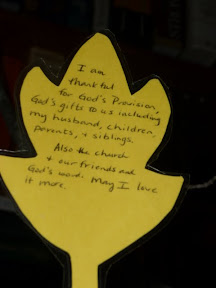 I am
thankful
for God's Provision,
God's gifts to us including
my husband, children,
parents, & siblings.
Also the church
& our friends and
God's word. May I love
it more.